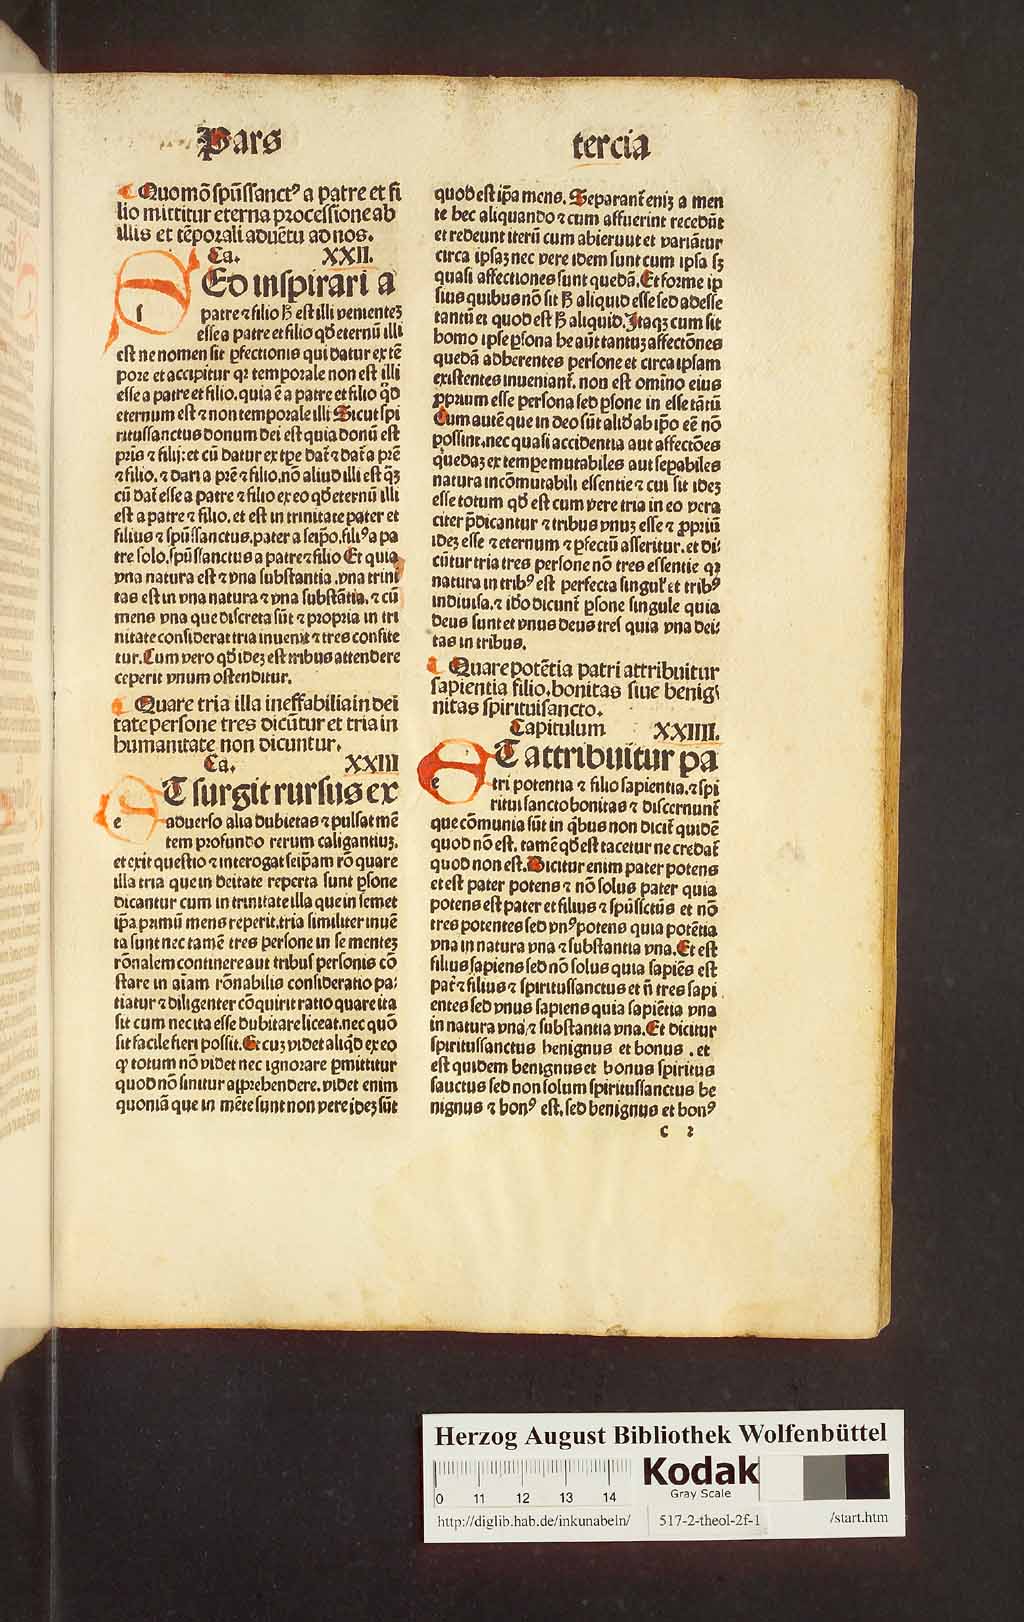 Pars tercia
Quomō spūssanctꝰ a patre et fi
lio mittitur eterna processione ab
illis et tēporali aduētu ad nos.
Ca. XXII.
i Eo inspirari a
patre ⁊ filio ħ est illi venientez
esse a patre et filio qđ eternū illi
est ne nomen sit ꝑfectionis qui datur ex tē
pore et accipitur qꝛ temporale non est illi
esse a patre et filio. quia ē a patre et filio qđ
eternum est ⁊ non temporale illi Sicut spi
ritussanctus donum dei est quia donū est
pr̄is ⁊ filij: et cū datur ex tꝑe dat̄ ⁊ dat̄ a pr̄e
⁊ filio. ⁊ dari a pr̄e ⁊ filio. nō aliud illi est qͣꝫ
cū dat̄ esse a patre ⁊ filio ex eo qđ eternū illi
est a patre ⁊ filio. et est in trinitate pater et
filius ⁊ spūssanctus. pater a seip̄o. filiꝰ a pa
tre solo. spūssanctus a patre ⁊ filio Et quia
vna natura est ⁊ vna substantia .vna trini
tas est in vna natura ⁊ vna substātia. ⁊ cū
mens vna que discreta sūt ⁊ propria in tri
nitate considerat tria inuenit ⁊ tres confite
tur. Cum vero qđ idez est tribus attendere
ceperit vnum ostenditur.
Quare tria illa ineffabilia in dei
tate persone tres dicūtur et tria in
humanitate non dicuntur.
Ca. XXIII
e T surgit rursus ex
aduerso alia dubietas ⁊ pulsat mē
tem profundo rerum caligantiuz.
et exit questio ⁊ interogat seip̄am rō quare
illa tria que in deitate reperta sunt ꝑsone
dicantur cum in trinitate illa que in semet
ip̄a primū mens reperit. tria similiter inuē
ta sunt nec tamē tres persone in se mentez
rōnalem continere aut tribus personis cō
stare in aīam rōnabilis consideratio pa⸗
tiatur ⁊ diligenter cōquirit ratio quare ita
sit cum nec ita esse dubitare liceat. nec quō
sit facile fieri possit. Et cuz videt aliqđ ex eo
ꝙ totum nō videt nec ignorare ꝑmittitur
quod nō sinitur apprehendere. videt enim
quoniā que in mēte sunt non vere idez sūt
quod est ip̄a mens. Separant̄ eniz a men
te hec aliquando ⁊ cum affuerint recedūt
et redeunt iterū cum abieruut et variātur
circa ipsaz nec vere idem sunt cum ipsa sꝫ
quasi affectiones sunt quedā. Et forme ip
sius quibus nō sit ħ aliquid esse sed adesse
tantū et quod est ħ aliquid. Itaqꝫ cum sit
homo ipse ꝑsona he aūt tantuz affectōnes
quedā adherentes persone et circa ipsam
existentes inueniant̄. non est omīno eius
ꝓprium esse persona sed ꝑsone in esse tātū
Cum autē que in deo sūt aliđ ab ip̄o eē nō
possint. nec quasi accidentia aut affectōes
quedaz ex tempe mutabiles aut seꝑabiles
natura incōmutabili essentie ⁊ cui sit idez
esse totum qđ est cum vere tria in eo vera
citer p̄dicantur ⁊ tribus vnuz esse ⁊ ꝓpriū
idez esse ⁊ eternum ⁊ ꝑfectū asseritur. et di⸗
cūtur tria tres persone nō tres essentie qꝛ
natura in tribꝰ est perfecta singul̄ et tribꝰ
indiuisa. ⁊ iđo dicunt̄ ꝑsone singule quia
deus sunt et vnus deus tres quia vna dei⸗
tas in tribus.
Quare potētia patri attribuitur
sapientia filio. bonitas siue benig⸗
nitas spirituisancto.
Capitulum XXIIII.
e T attribuitur pa
tri potentia ⁊ filio sapientia. ⁊ spi
rituisancto bonitas ⁊ discernunt̄
que cōmunia sūt in qͥbus non dicit̄ quidē
quod nō est. tamē qđ est tacetur ne credat̄
quod non est. Dicitur enim pater potens
et est pater potens ⁊ nō solus pater quia
potens est pater et filius ⁊ spūssctūs et nō
tres potentes sed vnꝰ potens quia potētia
vna in natura vna ⁊ substantia vna. Et est
filius sapiens sed nō solus quia sapiēs est
pat̄ ⁊ filius ⁊ spiritussanctus et n̄ tres sapi
entes sed vnus sapiens quia sapiētia vna
in natura vna ⁊ substantia vna. Et dicitur
spiritussanctus benignus et bonus . et
est quidem benignus et bonus spiritus
sauctus sed non solum spiritussanctus be
nignus ⁊ bonꝰ est. sed benignus et bonꝰ
c 2
Herzog August Bibliothek Wolfenbüttel
0 11 12 13 14
Kodak
Gray Scale
http://diglib.hab.de/inkunabeln/ 517-2-theol-2f-1 /start.htm